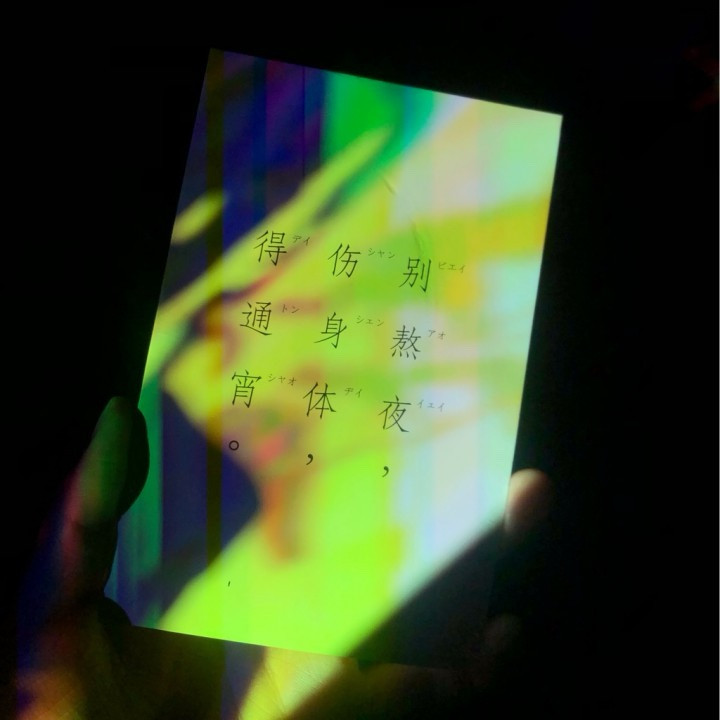 别熬夜，
ビエイ アオ イェイ
伤身体，
シャン シェン ディ
得通宵。
デイ トン シャオ